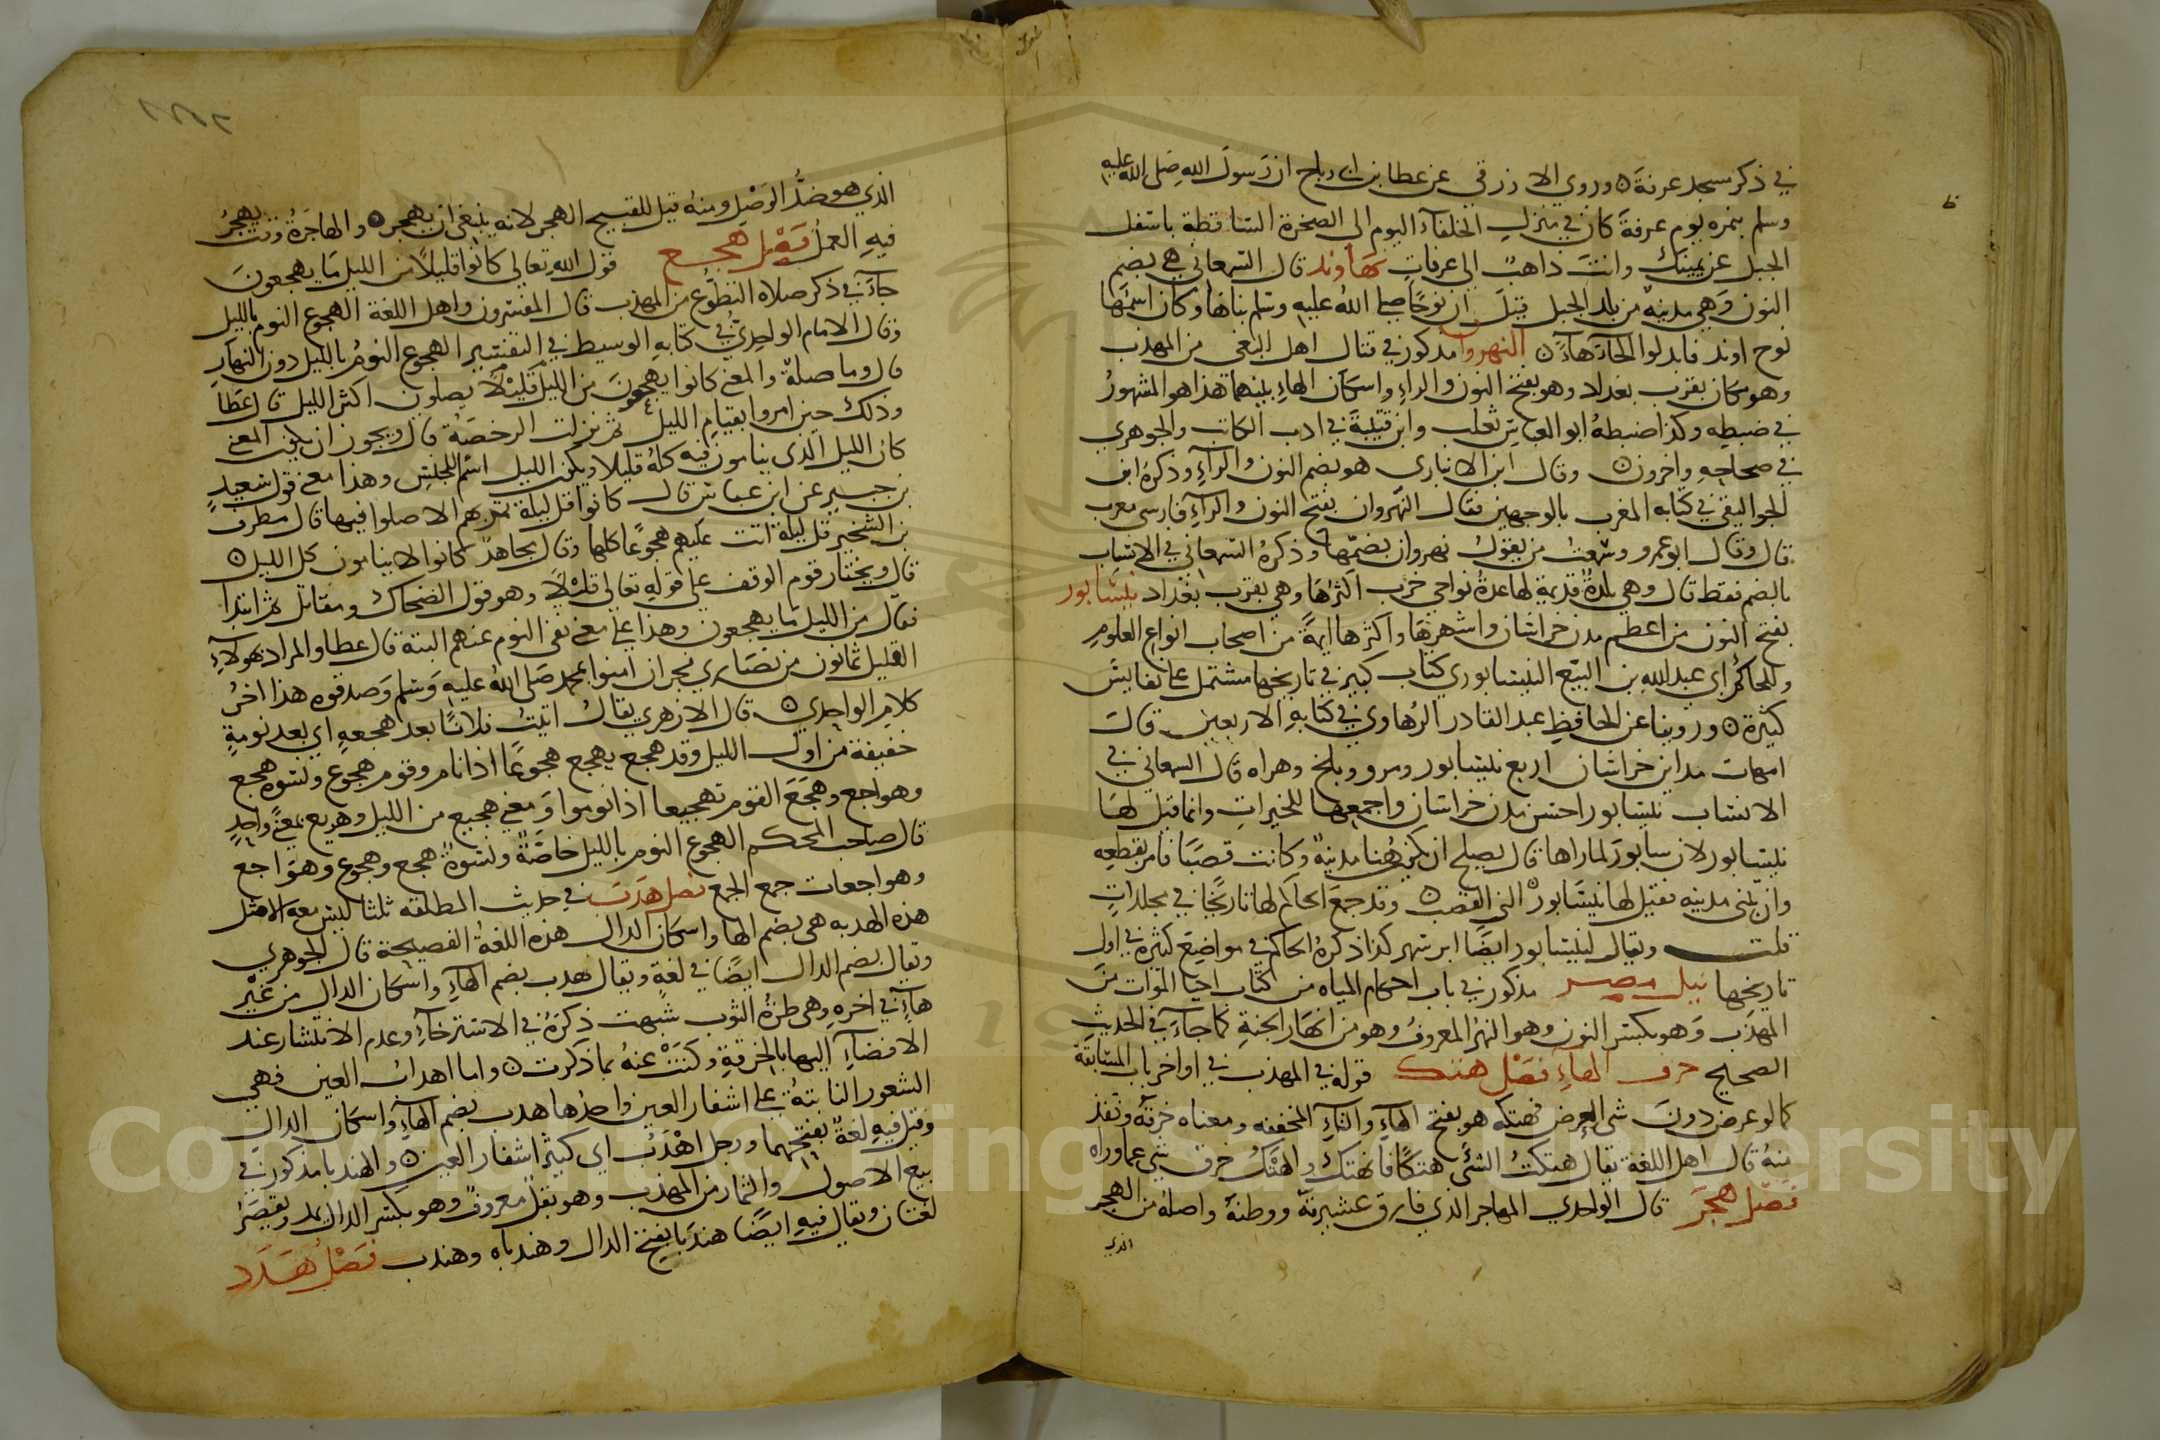 في ذكر مسجد عرنة ٥ وروي الازرقي عن عطا بن ابي رباح ان رسول الله صلى الله عليه
وسلم بنمره يوم عرفة كان في منزل الخلفآء اليوم الى الصخرة الساقطة باسفل
الجبل عن يمينك وانت ذاهب الى عرفات نهاوند قال السمعاني هي بضم
النون وهي مدينة من بلد الجبل قيل ان نوحا صلى الله عليه وسلم بناها وكان اسمها
نوح اوند فابدلوا الحآء هآء ٥ النهروان مذكور في قتال اهل البغي من المهذب
وهو مكان بقرب بغداد وهو بفتح النون والراء واسكان الهاء بينهما هذا هو المشهور
في ضبطه وكذا ضبطه ابو العباس ثعلب وابن قتيبة في ادب الكاتب والجوهري
في صحاحه واخرون ٥ وقال ابن الانباري هو بضم النون والرآء وذكره ابن
الجواليقي في كتابه المعرب بالوجهين فقال النهروان بفتح النون والرآء فارسي معرب
قال وقال ابو عمرو وسمعت من يقول نهروان بضمها وذكره السمعاني في الانساب
بالضم فقط قال وهي بلدة قديمة لها عدة نواحي خرب اكثرها وهي بقرب بغداد نيسابور
بفتح النون من اعظم مدن خراسان واشهرها واكثرها ائمة من اصحاب انواع العلوم
وللحاكم ابي عبد الله بن البيع النيسابوري كتاب كبير في تاريخها مشتمل على نفايس
كثيرة ٥ وروينا عن الحافظ عبد القادر الرهاوي في كتابه الاربعين قال
امهات مداين خراسان اربع نيسابور ومرو وبلخ وهراه قال السمعاني في
الانساب نيسابور احسن مدن خراسان واجمعها للخيرات وانما قيل لها
نيسابور لان سابور لما راها قال يصلح ان يكون هنا مدينة وكانت قصبا فامر بقطعه
وان يبنى مدينه فقيل لها نيسابور الني القصب ٥ وقد جمع الحاكم لها تاريخا في مجلدات
قلت ويقال لنيسابور ايضا ابرشهر كذا ذكره الحاكم في مواضع كثيرة في اول
تاريخها نيل مصر مذكور في باب احكام المياه من كتاب احيا الموات من
المهذب وهو بكسر النون وهو النهر المعروف وهو من انهار الجنة كما جآء في الحديث
الصحيح حرف الهاء فصل هتك قوله في المهذب في اواخر باب المسابقة
كما لو عرض دون شي العرض فهتكه هو بفتح الهآء والتآء المخففه ومعناه خرقه ونفذ
منه قال اهل اللغة يقال هتكت الشئ هتكا فانهتك والهتك خرق شي عما وراه
فصل هجر قال الواحدي المهاجر الذي فارق عشيرته ووطنه واصله من الهجر
الذي
الذي هو ضد الوصل ومنه قيل للقبيح الهجر لانه ينبغي ان يهجر ٥ والهاجرة وقت يهجر
فيه العمل فصل هجع قول الله تعالى كانوا قليلا من الليل ما يهجعون
جآء في ذكر صلاة التطوع من المهذب قال المفسرون واهل اللغة الهجوع النوم بالليل
وقال الامام الواحدي في كتابه الوسيط في التفسير الهجوع النوم بالليل دون النهار
قال وما صلة والمعنى كانوا يهجعون من الليل قليلا يصلون اكثر الليل قال عطا
وذلك حين امروا بقيام الليل ثم نزلت الرخصة قال ويجوز ان يكون المعنى
كان الليل الذي ينامون فيه كله قليلا ويكون الليل اسم للجنس وهذا معنى قول سعيد
بن جبير عن ابن عباس قال كانوا قل ليلة تمر بهم الا صلوا فيها قال مطرف
بن الشخير قل ليلة اتت عليهم هجوعا كلها وقال مجاهد كانوا لا ينامون كل الليل ٥
قال ويختار قوم الوقف على قوله تعالى قليلا وهو قول الضحاك ومقاتل ثم ابتدا
فقال من الليل ما يهجعون وهذا على معنى نفي النوم عنهم البتة قال عطا والمراد بهولآء
القليل ثمانون من نصارى نجران امنوا بمحمد صلى الله عليه وسلم وصدقوه هذا اخر
كلام الواحدي ٥ قال الازهري يقال اتيت فلانا بعد هجعه اي بعد نومة
خفيفة من اول الليل وقد هجع يهجع هجوعا اذا نام وقوم هجوع ونسوة هجع
وهواجع وهجع القوم تهجيعا اذا نوموا ومعنى هجيع من الليل وهزيع بمعنى واحد
قال صاحب المحكم الهجوع النوم بالليل خاصة ونسوة هجع وهجوع وهواجع
وهواجعات جمع الجمع فصل هدب في حديث المطلقه ثلثا ليس معه الا مثل
هذه الهدبه هي بضم الها واسكان الدال هذه اللغة الفصيحة قال الجوهري
ويقال بضم الدال ايضا في لغة ويقال هدب بضم الهآء واسكان الدال من غير
هآء في اخره وهي طرة الثوب شبهت ذكره في الاسترخآء وعدم الانتشار عند
الافضآء اليها بالخرقة وكنت عنه بما ذكرت ٥ واما اهداب العين فهي
الشعور النابتة على اشفار العين واحدها هدب بضم الهآء واسكان الدال
وقيل فيه لغة بفتحهما ورجل اهدب اي كثير اشفار العين ٥ والهندبا مذكور في
بيع الاصول والثمار من المهذب وهو بقل معروف وهو بكسر الدال يمد ويقصر
لغتان ويقال فيه ايضا هندبا بفتح الدال وهندباه وهندب فصل هدد
Copyright © King Saud University